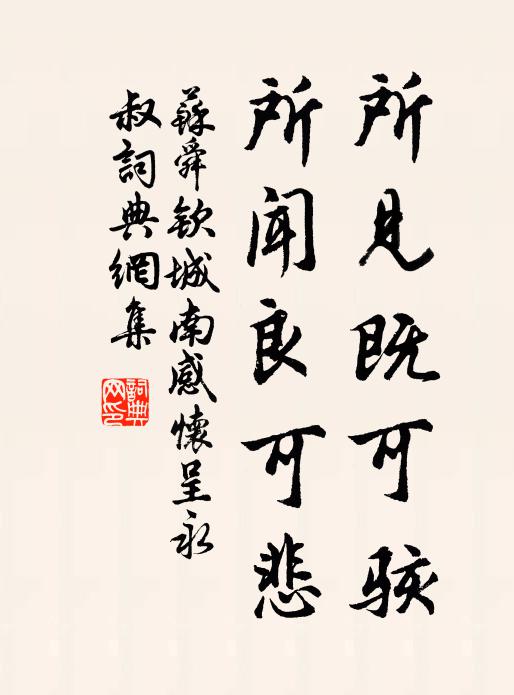 所見既可駭
所聞良可悲
蘇舜欽城南感懷呈永
叔詞典網集
詞典
网印